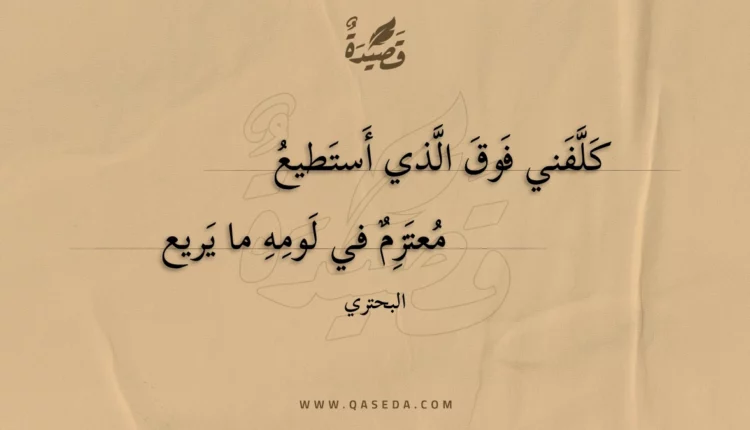 قَصِيْدَةٌ
كَلَّفَني فَوقَ الَّذي أَستَطيعُ
مُعتَزِمٌ في لَومِهِ ما يَريع
البحتري
WWW.QASEDA.COM